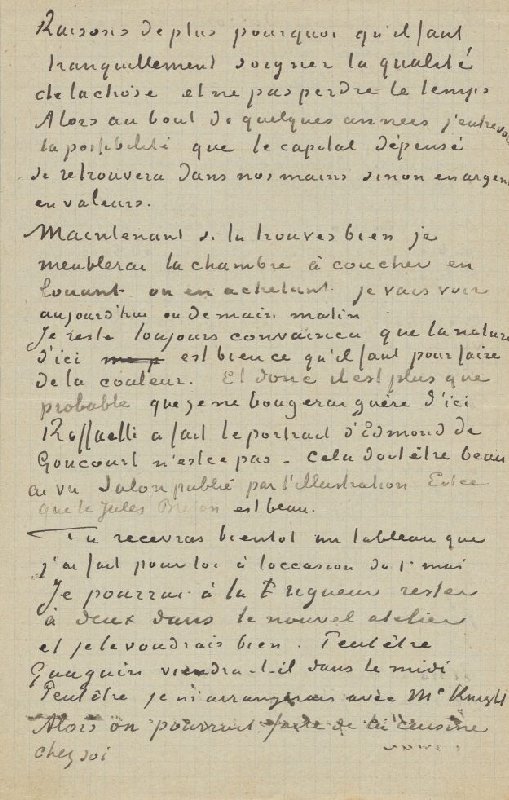 Raisons de plus pourquoi qu'il faut
tranquillement soigner la qualité
de la chose et ne pas perdre le temps
Alors au bout de quelques années j'entrevois
la possibilité que le capital dépensé
se retrouvera dans nos mains sinon en argent
en valeurs.
Maintenant si tu trouves bien je
meublerai la chambre à coucher en
louant ou en achetant je vais voir
aujourd'hui ou demain matin
Je reste toujours convaincu que la nature
d'ici est bien ce qu'il faut pour faire
de la couleur. Et donc il est plus que
probable que je ne bougerai guère d'ici
Raffaelli a fait le portrait d'Edmond de
Goncourt n'est ce pas - cela doit être beau
ai vu Salon publié par l'illustration Est ce
que le Jules Breton est beau.
Tu recevras bientot un tableau que
j'ai fait pour toi à l'occasion du 1r mai
Je pourrai à la rigueur rester
à deux dans le nouvel atelier
et je le voudrais bien. Peutêtre
Gauguin viendra-t-il dans le midi
Peutêtre je m'arrangerais avec Mc Knight
Alors on pourrait faire de la cuisine
chez soi